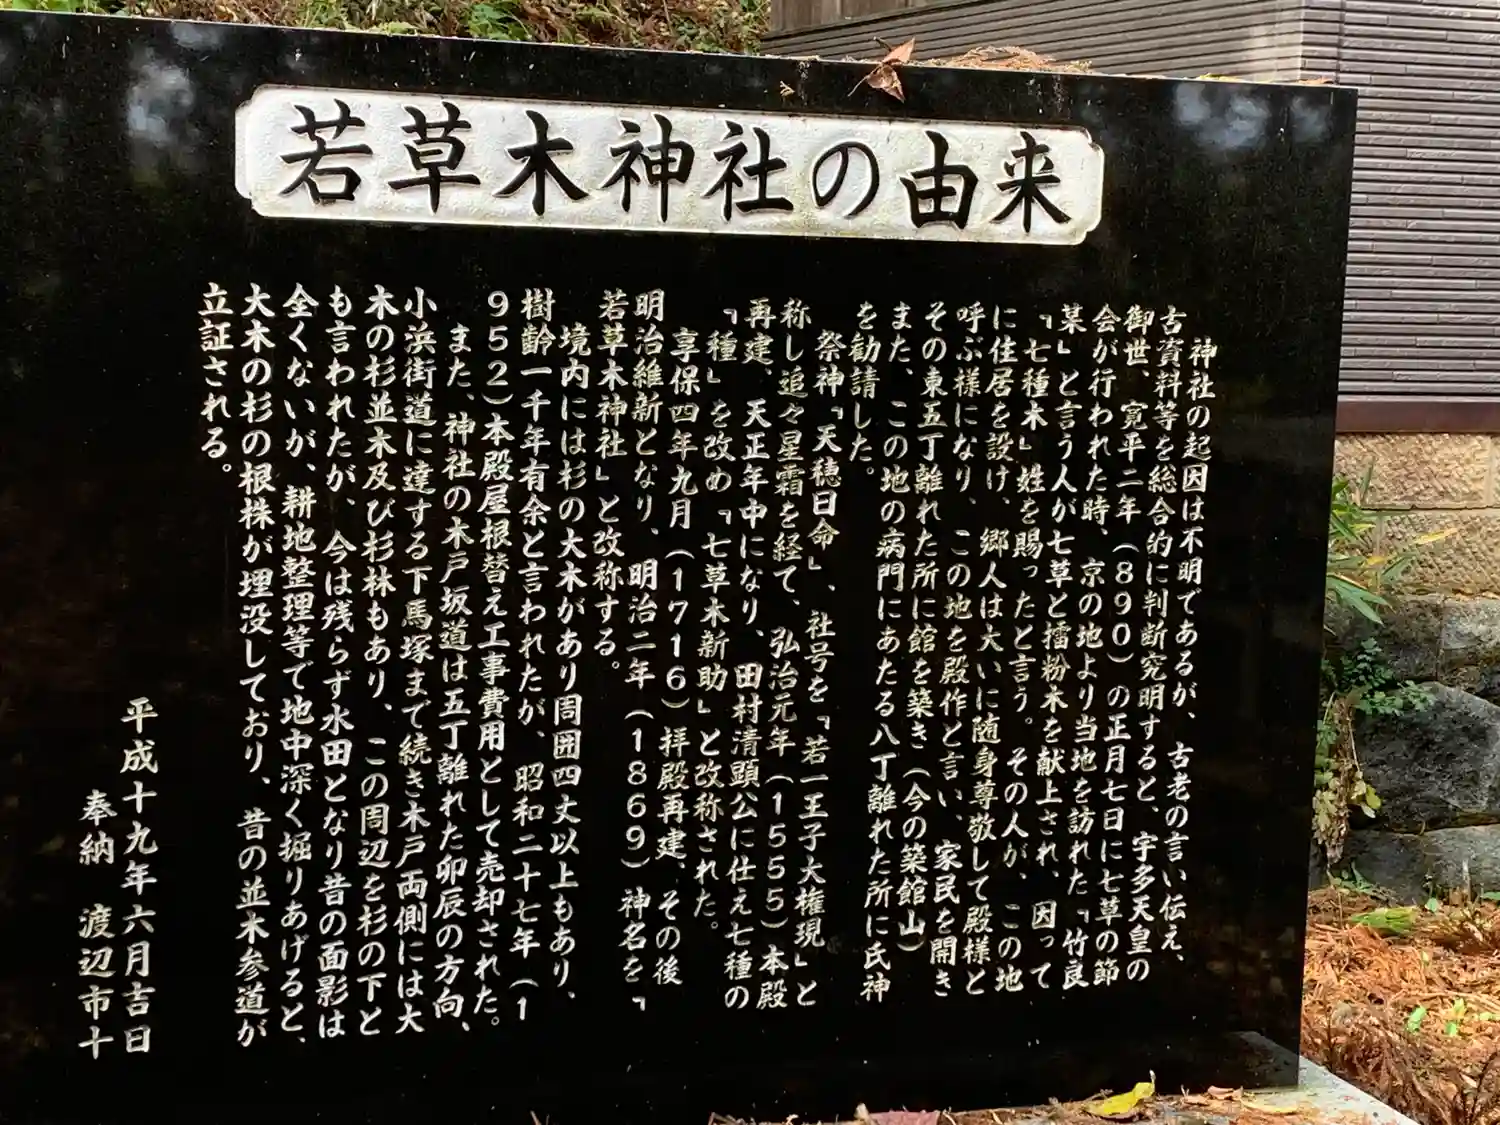 若草木神社の由来
神社の起因は不明であるが、古老の言い伝え、
古資料等を総合的に判断究明すると、宇多天皇の
御世、寛平二年（８９０）の正月七日に七草の節
会が行われた時、京の地より当地を訪れた「竹良
某」と言う人が七草と擂粉木を献上され、因って
「七種木」姓を賜ったと言う。その人が、この地
に住居を設け、郷人は大いに随身尊敬して殿様と
呼ぶ様になり、この地を殿作と言い、家民を開き
その東五丁離れた所に館を築き（今の築館山）
また、この地の病門にあたる八丁離れた所に氏神
を勧請した。
祭神「天穂日命」、社号を「若一王子大権現」と
称し追々星霜を経て、弘治元年（１５５５）本殿
再建、天正年中になり、田村清顕公に仕え七種の
「種」を改め「七草木新助」と改称された。
享保四年九月（１７１６）拝殿再建、その後
明治維新となり、明治二年（１８６９）神名を「
若草木神社」と改称する。
境内には杉の大木があり周囲四丈以上もあり、
樹齢一千年有余と言われたが、昭和二十七年（１
９５２）本殿屋根替え工事費用として売却された。
また、神社の木戸坂道は五丁離れた卯辰の方向、
小浜街道に達する下馬塚まで続き木戸両側には大
木の杉並木及び杉林もあり、この周辺を杉の下と
も言われたが、今は残らず水田となり昔の面影は
全くないが、耕地整理等で地中深く掘りあげると、
大木の杉の根株が埋没しており、昔の並木参道が
立証される。
平成十九年六月吉日
奉納　渡辺市十